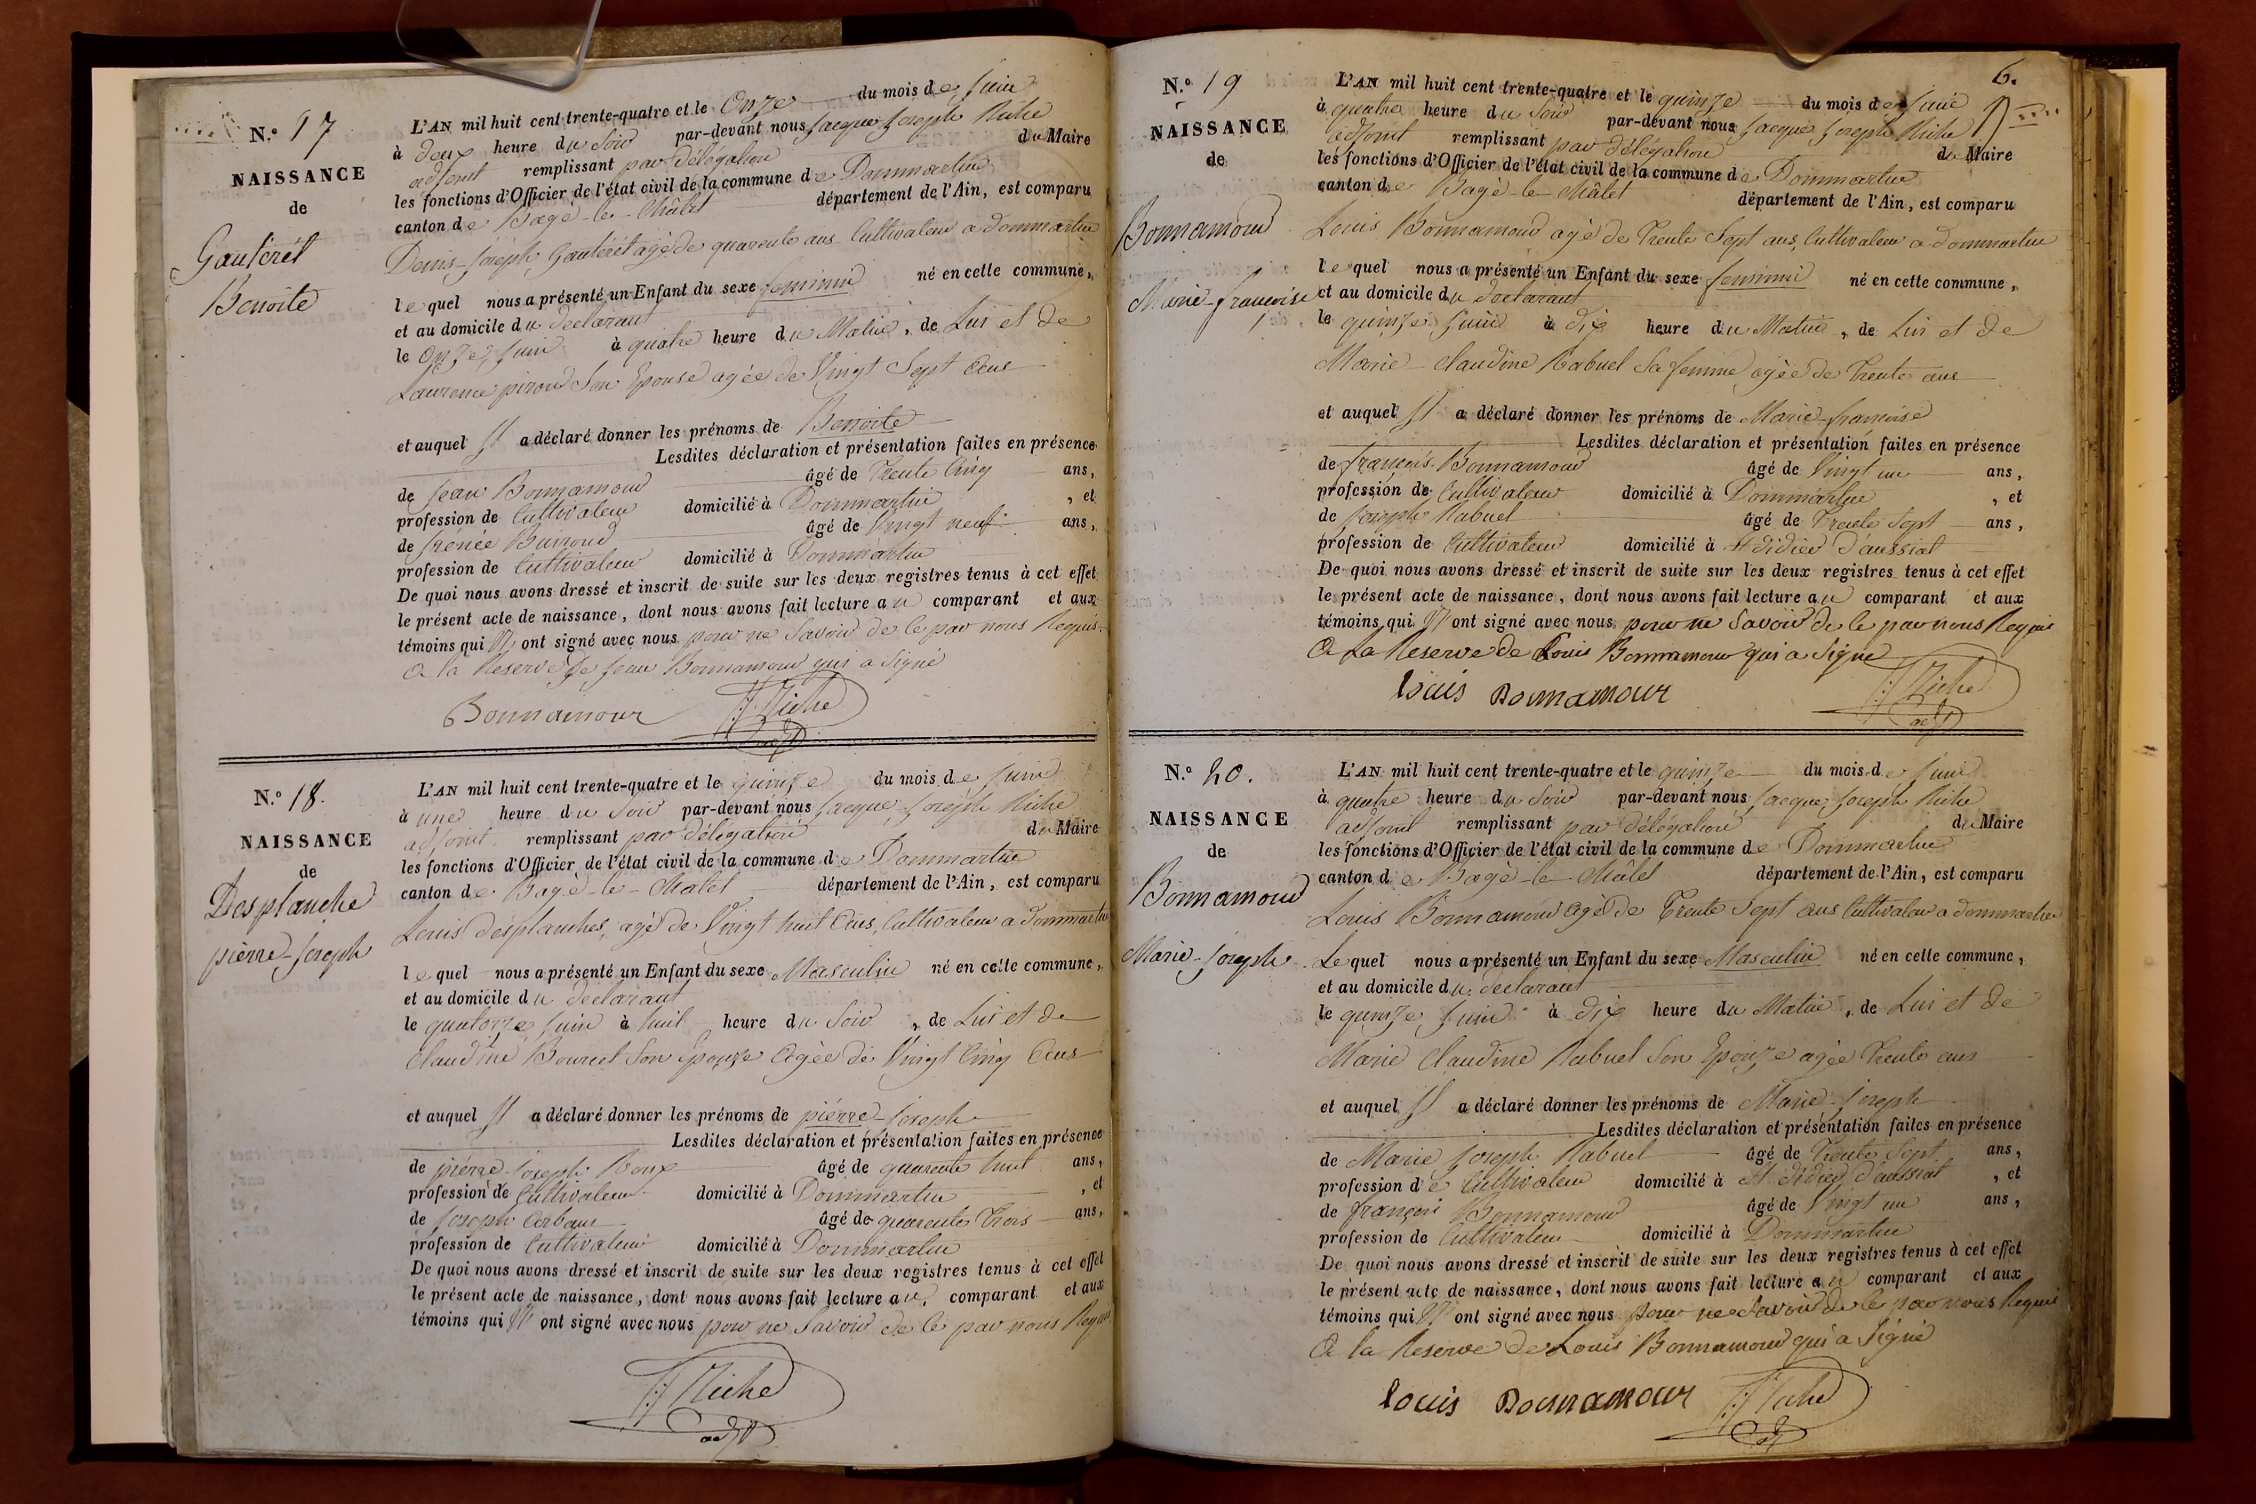 N.º 17
NAISSANCE
de
Gauteret
Benoite
L'AN mil huit cent trente-quatre et le Onze du mois de juin
à deux heure du Soir par-devant nous Jacque Joseph Riche
adjoint remplissant par délégation du Maire
les fonctions d'Officier de l'état civil de la commune de Dommartin
canton de Bagé-le-Châtel département de l'Ain, est comparu
Denis-Joseph Gauteret agé de quarente ans Cultivateur a dommartin
le quel nous a présenté un Enfant du sexe feminin né en cette commune,
et au domicile du declarant
le Onze juin à quatre heure du Matin, de Lui et de
Laurence piroud Son Epouse agée de Vingt Sept Ans
et auquel Il a déclaré donner les prénoms de Benoite
Lesdites déclaration et présentation faites en présence
de Jean Bonnamour âgé de Trente Cinq ans,
profession de Cultivateur domicilié à Dommartin, et
de âgé de Vingt neuf ans,
profession de Cultivateur domicilié à Dommartin
De quoi nous avons dressé et inscrit de suite sur les deux registres tenus à cet effet
le présent acte de naissance, dont nous avons fait lecture au comparant et aux
témoins qui N' ont signé avec nous pour ne Savoir de ce par nous Requis
A la Reserve de Jean Bonnamour qui a Signé
Bonnamour JJ Riche
adj
N.º 18.
NAISSANCE
de
Desplanche
pierre-Joseph
L'AN mil huit cent trente-quatre et le quinze du mois de juin
à une heure du Soir par-devant nous Jacque Joseph Riche
adjoint remplissant par délégation du Maire
les fonctions d'Officier de l'état civil de la commune de Dommartin
canton de Bagé-le-Chatel département de l'Ain, est comparu
Louis desplanches, agé de Vingt huit Ans, Cultivateur a dommartin
le quel nous a présenté un Enfant du sexe Masculin né en cette commune,
et au domicile du declarant
le quatorze juin à huit heure du Soir, de Lui et de
Claudine Bourcet Son Epouze Agée de Vingt Cinq Ans
et auquel Il a déclaré donner les prénoms de piérre-Joseph
Lesdites déclaration et présentation faites en présence
de piérre Joseph Roux âgé de quarente huit ans,
profession de Cultivateur domicilié à Dommartin, et
de Joseph âgé de quarente Trois ans,
profession de Cultivateur domicilié à Dommartin
De quoi nous avons dressé et inscrit de suite sur les deux registres tenus à cet effet
le présent acte de naissance, dont nous avons fait lecture au comparant et aux
témoins qui N' ont signé avec nous pour ne Savoir de ce par nous Requis
JJ Riche
adj
6.
N.º 19
NAISSANCE
de
Bonnamour
Marie-françoise
L'AN mil huit cent trente-quatre et le quinze du mois de juin
à quatre heure du Soir par-devant nous Jacque Joseph Riche
adjoint remplissant par délégation du Maire
les fonctions d'Officier de l'état civil de la commune de Dommartin
canton de Bagé-le-Châtel département de l'Ain, est comparu
Louis Bonnamour agé de Trente Sept ans, Cultivateur a dommartin
le quel nous a présenté un Enfant du sexe feminin né en cette commune,
et au domicile du declarant
le quinze juin à dix heure du Matin, de Lui et de
Marie Claudine Rabuel Sa femme agée de Trente ans
et auquel Il a déclaré donner les prénoms de Marie-francoise
Lesdites déclaration et présentation faites en présence
de françois Bonnamour âgé de Vingt un ans,
profession de Cultivateur domicilié à Dommartin, et
de Joseph Rabuel âgé de Trente Sept ans,
profession de Cultivateur domicilié à St didier d'aussiat
De quoi nous avons dressé et inscrit de suite sur les deux registres tenus à cet effet
le présent acte de naissance, dont nous avons fait lecture au comparant et aux
témoins qui N' ont signé avec nous pour ne Savoir de ce par nous Requis
A La Reserve de Louis Bonnamour qui a Signé
louis Bonnamour JJ Riche
adj
N.º 20.
NAISSANCE
de
Bonnamour
Marie-Joseph
L'AN mil huit cent trente-quatre et le quinze du mois de juin
à quatre heure du Soir par-devant nous Jacque Joseph Riche
adjoint remplissant par délégation du Maire
les fonctions d'Officier de l'état civil de la commune de Dommartin
canton de Bagé-le-Châtel département de l'Ain, est comparu
Louis Bonnamour agé de Trente Sept ans Cultivateur a dommartin
Le quel nous a présenté un Enfant du sexe Masculin né en cette commune,
et au domicile du declarant
le quinze juin à dix heure du Matin, de Lui et de
Marie Claudine Rabuel Son Epouze agée Trente ans
et auquel Il a déclaré donner les prénoms de Marie-Joseph
Lesdites déclaration et présentation faites en présence
de Marie Joseph Rabuel âgé de Trente Sept ans,
profession de Cultivateur domicilié à St didier d'aussiat, et
de françois Bonnamour âgé de Vingt un ans,
profession de Cultivateur domicilié à Dommartin
De quoi nous avons dressé et inscrit de suite sur les deux registres tenus à cet effet
le présent acte de naissance, dont nous avons fait lecture au comparant et aux
témoins qui N' ont signé avec nous pour ne Savoir de ce par nous Requis
A la Reserve de Louis Bonnamour qui a Signé
louis Bonnamour JJ Riche
adj